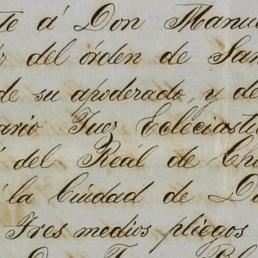 te á Don Manu
del órden de San
de su apoderado, y de
ario Juez Ecleciasti
del Real de Ch
la Ciudad de D
Tres medios pliegos